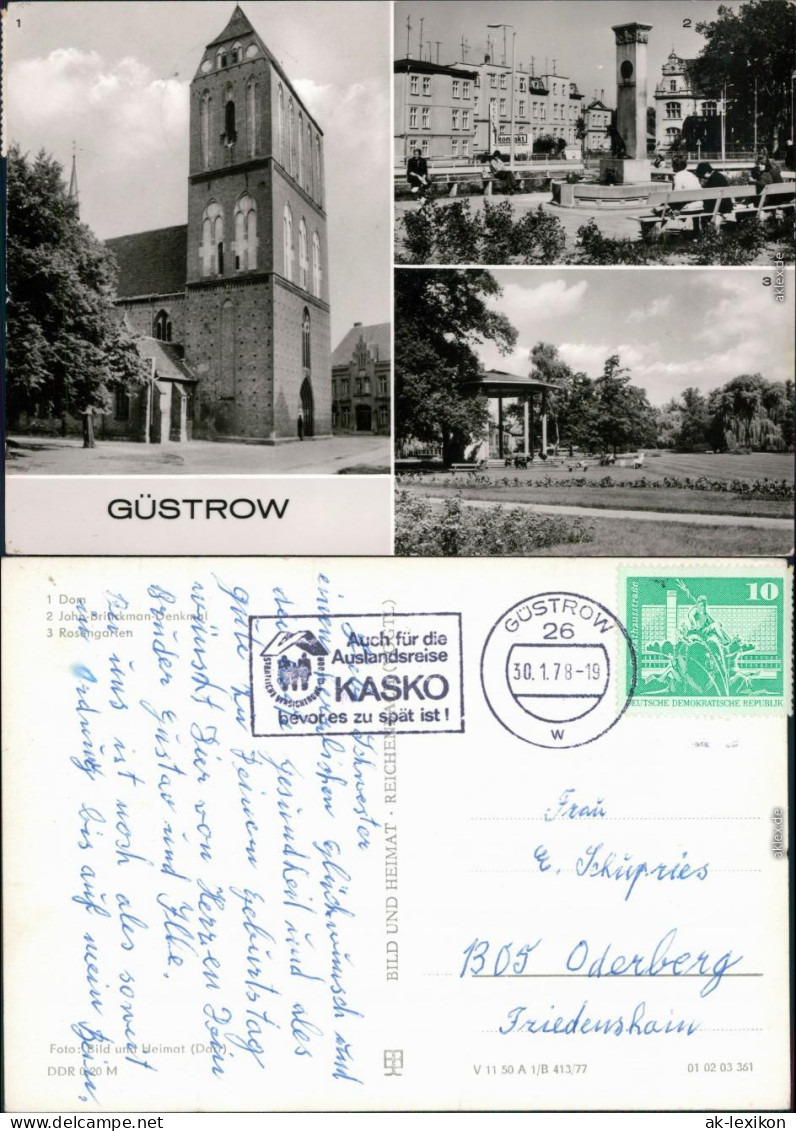 1
2
kontakt
3
GÜSTROW
1 Dom
2 John-Brinckman-Denkmal
3 Rosengarten
Schwester
einen herzlichen Glückwunsch und
Gesundheit und ales
gute zu Deinem Geburtstag
wünscht Dir von Herzen Dein
Brüder Gustav und Ilse.
Bei uns ist noch ales soweit
in Ordnung bis auf mein Bein.
Auch für die
Auslandsreise
KASKO
bevor es zu spät ist!
GÜSTROW
26
30.1.78-19
w
10
DEUTSCHE DEMOKRATISCHE REPUBLIK
BILD UND HEIMAT · REICHENBACH (VOGTL)
Frau
E. Schupries
1305 Oderberg
Friedenshain
Foto: Bild und Heimat (Darr)
DDR 0,20 M
V 11 50 A 1/B 413/77
01 02 03 361
aklex.de
aklex.de
ak-lexikon